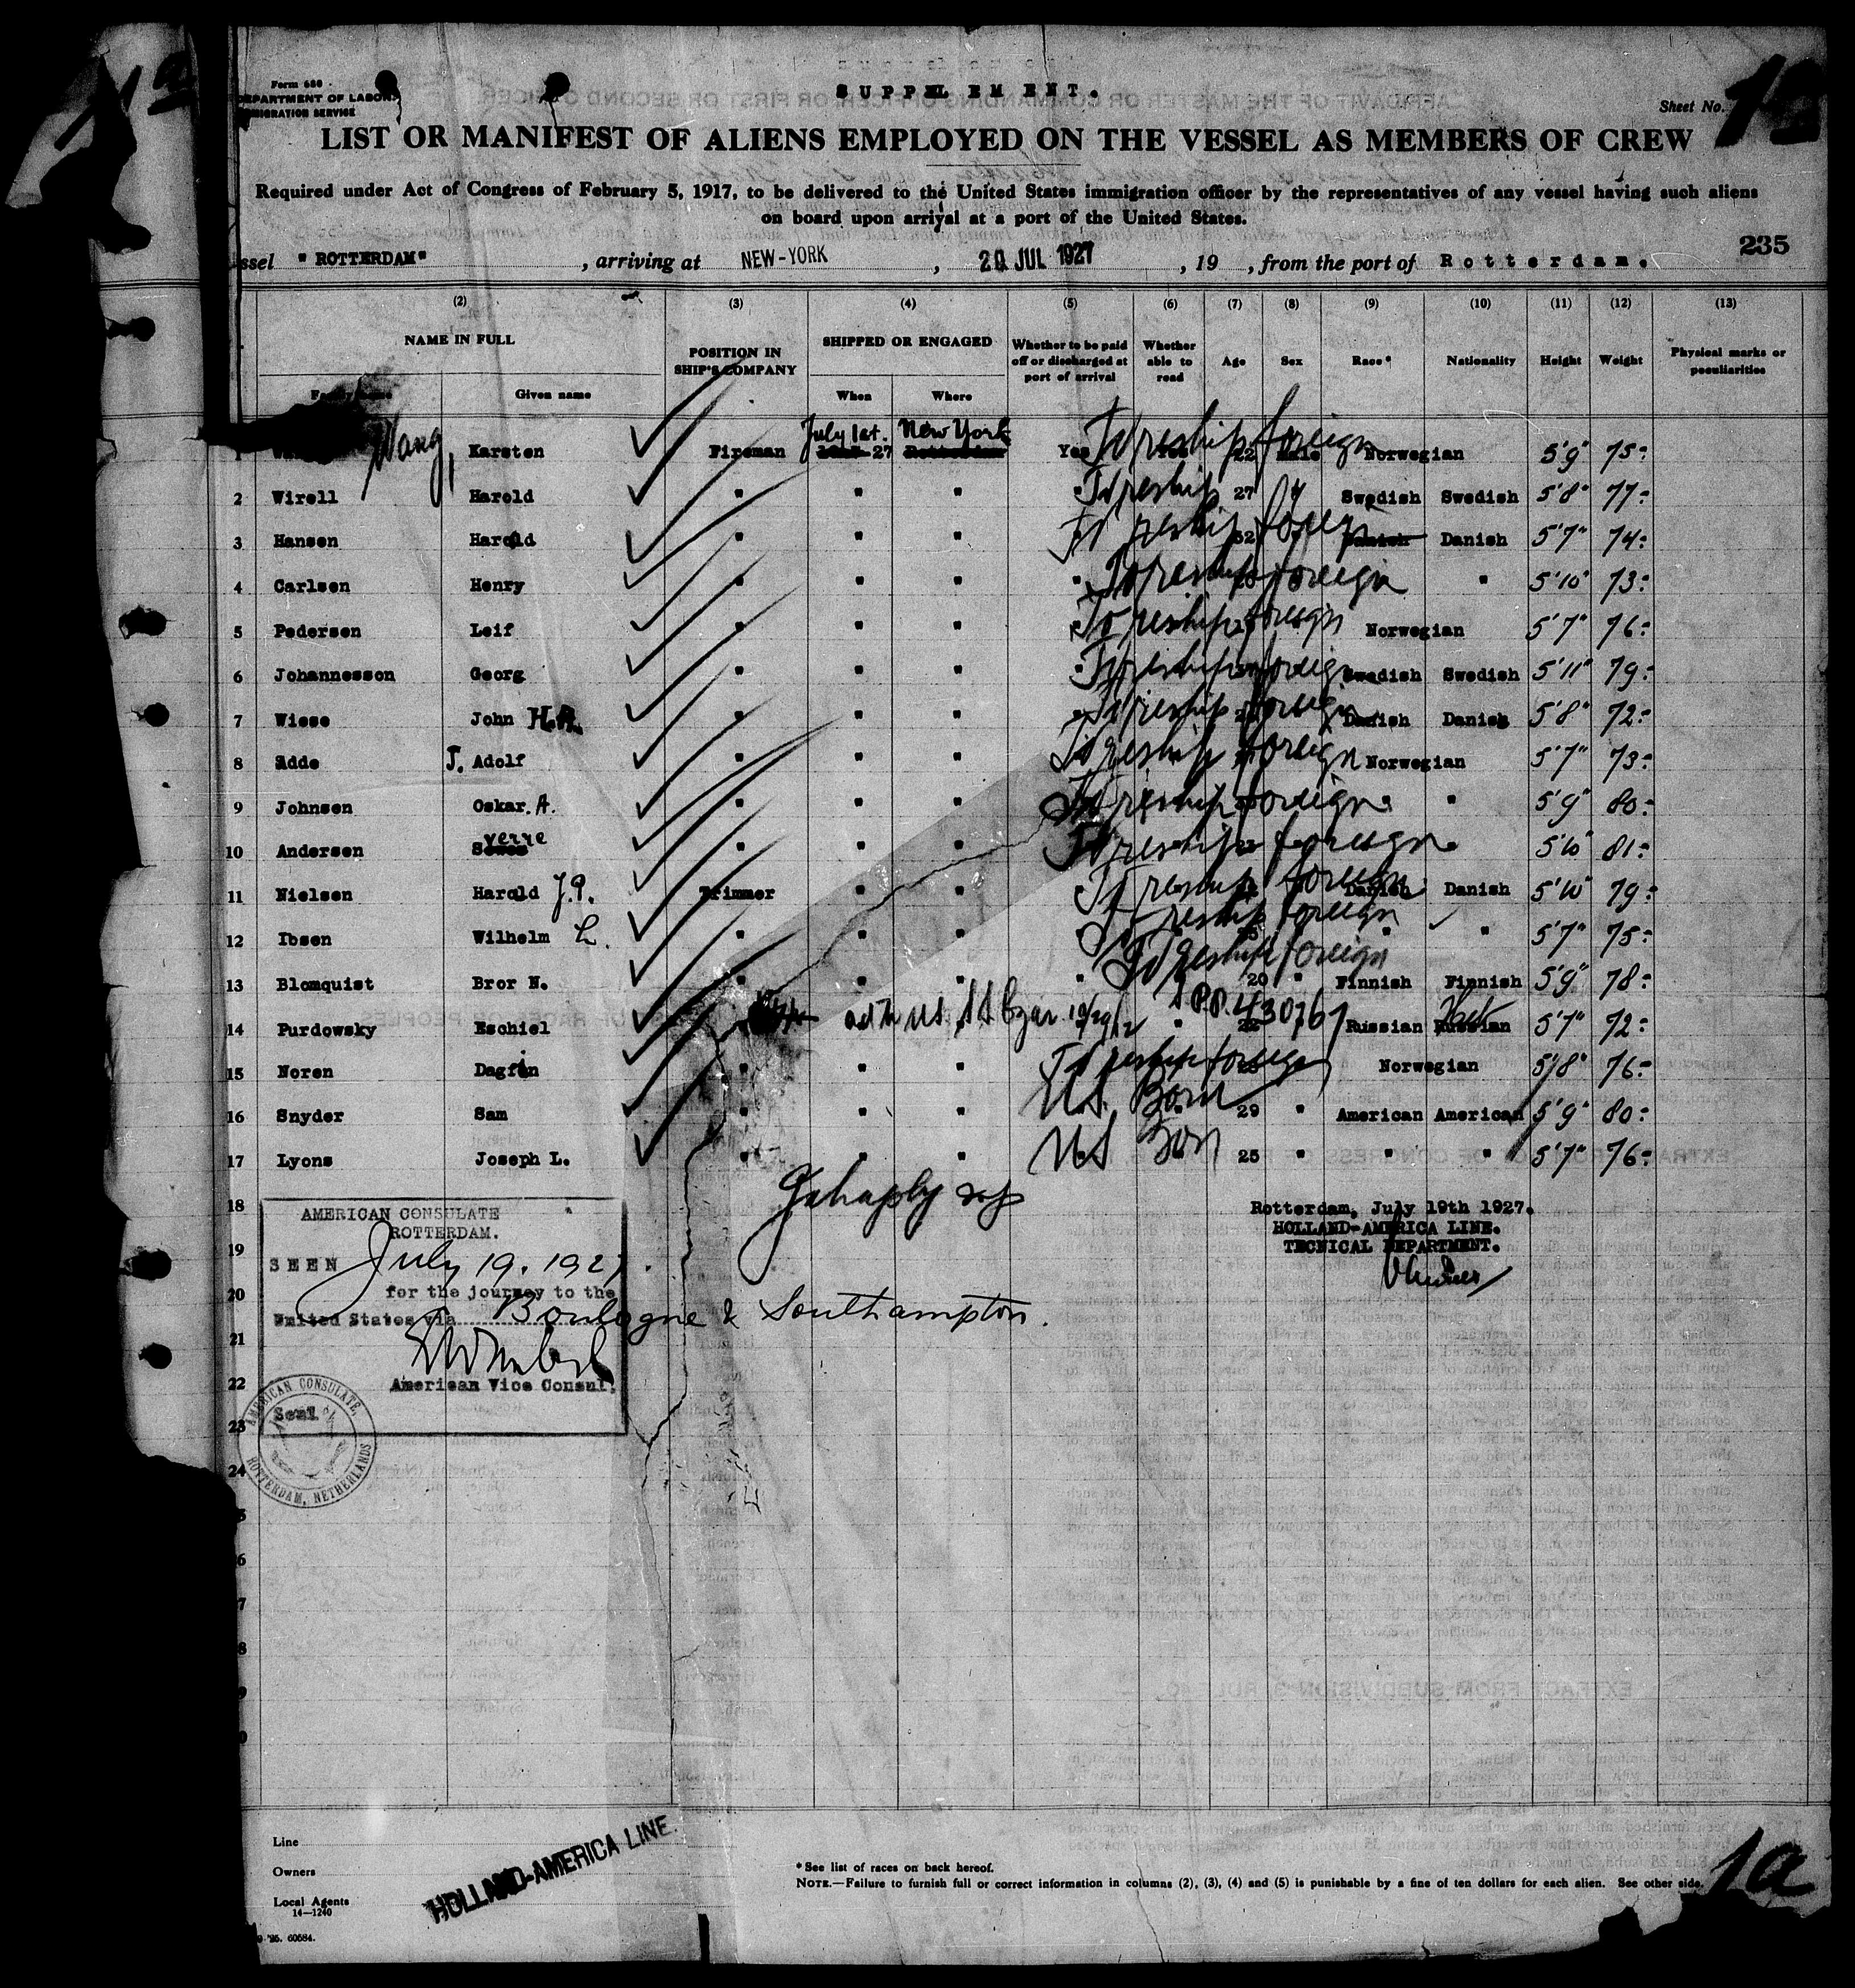 1a
Form 680
DEPARTMENT OF LABOR
IMMIGRATION SERVICE
SUPPLEMENT.
Sheet No. 1a
LIST OR MANIFEST OF ALIENS EMPLOYED ON THE VESSEL AS MEMBERS OF CREW
Required under Act of Congress of February 5, 1917, to be delivered to the United States immigration officer by the representatives of any vessel having such aliens
on board upon arrival at a port of the United States.
235
ssel "ROTTERDAM", arriving at NEW-YORK, 20 JUL 1927, 19 , from the port of Rotterdam.
(2) (3) (4) (5) (6) (7) (8) (9) (10) (11) (12) (13)
NAME IN FULL POSITION IN SHIP'S COMPANY SHIPPED OR ENGAGED Whether to be paid off or discharged at port of arrival Whether able to read Age Sex Race* Nationality Height Weight Physical marks or peculiarities
Family name Given name When Where
1 Wang, Karsten Fireman July 1st. 27 New York Yes To reship foreign 22 Male Norwegian 5'9" 75-
2 Wirell Harold " " " " To reship 27 Swedish Swedish 5'8" 77-
3 Hansen Harold " " " " To reship foreign 32 Danish Danish 5'7" 74-
4 Carlsen Henry " " " " To reship foreign " 5'10" 73-
5 Pedersen Leif " " " " To reship foreign Norwegian 5'7" 76-
6 Johannesson Georg " " " " To reship foreign Swedish Swedish 5'11" 79-
7 Wiese John H.A. " " " " To reship foreign Danish Danish 5'8" 72-
8 Adde J. Adolf " " " To reship foreign Norwegian 5'7" 73-
9 Johnsen Oskar. A. " " " To reship foreign " " 5'9" 80-
10 Andersen verre " " " To reship foreign 5'10" 81-
11 Nielsen Harold J.P. Trimmer " " To reship foreign Danish Danish 5'10" 79-
12 Ibsen Wilhelm L. " " " To reship foreign " " 5'7" 75-
13 Blomquist Bror N. " " " " To reship foreign 20 " Finnish Finnish 5'9" 78-
14 Purdowsky Eschiel adm US SS Czar P.P. 430767 " 22 Russian Russian 5'7" 72-
15 Noren Dagfin " " " To reship foreign Norwegian 5'8" 76-
16 Snyder Sam " " " US Born 29 " American American 5'9" 80-
17 Lyons Joseph L. " " " US Born 25 " " " 5'7" 76-
18
19
20
21
22
23
24
5
6
7
8
9
0
AMERICAN CONSULATE
ROTTERDAM.
SEEN July 19. 1927.
for the journey to the
United States via Boulogne & Southampton.
American Vice Consul.
Seal
AMERICAN CONSULATE, ROTTERDAM, NETHERLANDS
Rotterdam, July 19th 1927.
HOLLAND-AMERICA LINE.
TECNICAL DEPARTMENT.
Line
Owners
Local Agents
14—1240
HOLLAND-AMERICA LINE
*See list of races on back hereof.
NOTE.—Failure to furnish full or correct information in columns (2), (3), (4) and (5) is punishable by a fine of ten dollars for each alien. See other side.
1a
9-'25. 60584.